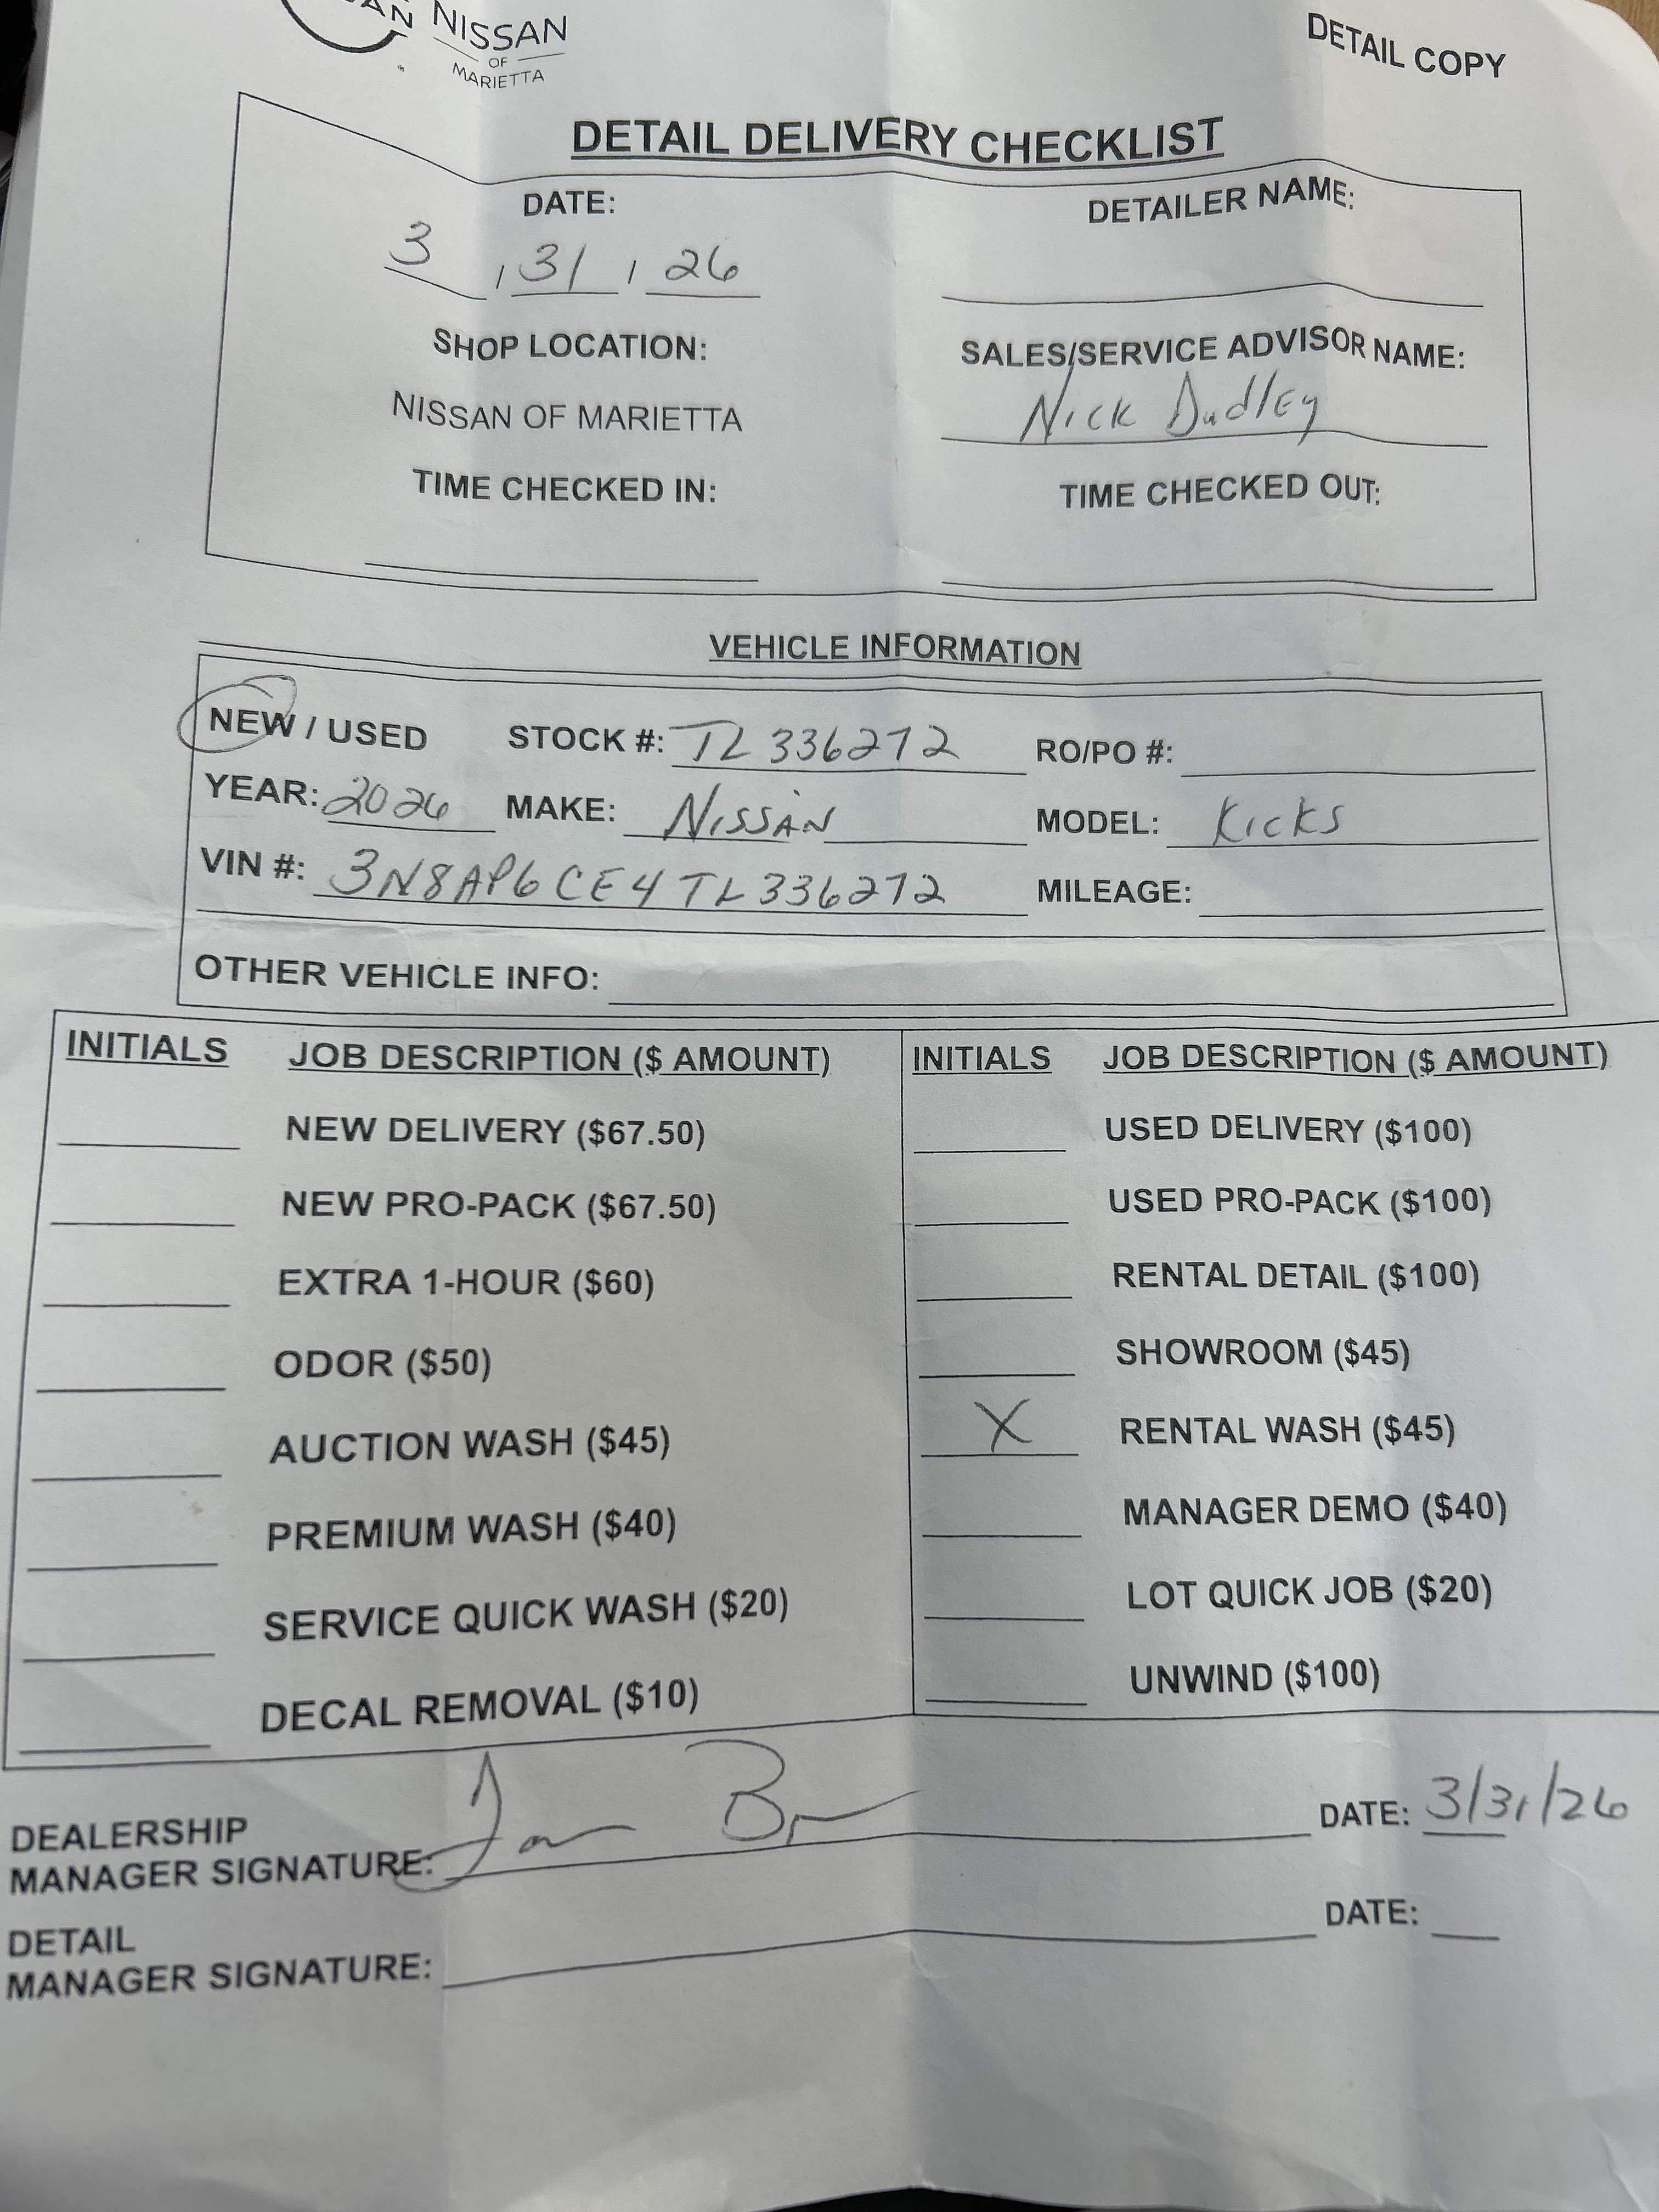 NISSAN
OF
MARIETTA
DETAIL COPY
DETAIL DELIVERY CHECKLIST
DATE: DETAILER NAME:
3 / 31 / 26
SHOP LOCATION: SALES/SERVICE ADVISOR NAME:
NISSAN OF MARIETTA Nick Dudley
TIME CHECKED IN: TIME CHECKED OUT:
VEHICLE INFORMATION
NEW / USED STOCK #: TL336272 RO/PO #:
YEAR: 2026 MAKE: NISSAN MODEL: Kicks
VIN #: 3N8AP6CE4TL336272 MILEAGE:
OTHER VEHICLE INFO:
INITIALS JOB DESCRIPTION ($ AMOUNT) INITIALS JOB DESCRIPTION ($ AMOUNT)
NEW DELIVERY ($67.50) USED DELIVERY ($100)
NEW PRO-PACK ($67.50) USED PRO-PACK ($100)
EXTRA 1-HOUR ($60) RENTAL DETAIL ($100)
ODOR ($50) SHOWROOM ($45)
AUCTION WASH ($45) X RENTAL WASH ($45)
PREMIUM WASH ($40) MANAGER DEMO ($40)
SERVICE QUICK WASH ($20) LOT QUICK JOB ($20)
DECAL REMOVAL ($10) UNWIND ($100)
DEALERSHIP
MANAGER SIGNATURE: DATE: 3/31/26
DETAIL
MANAGER SIGNATURE: DATE: